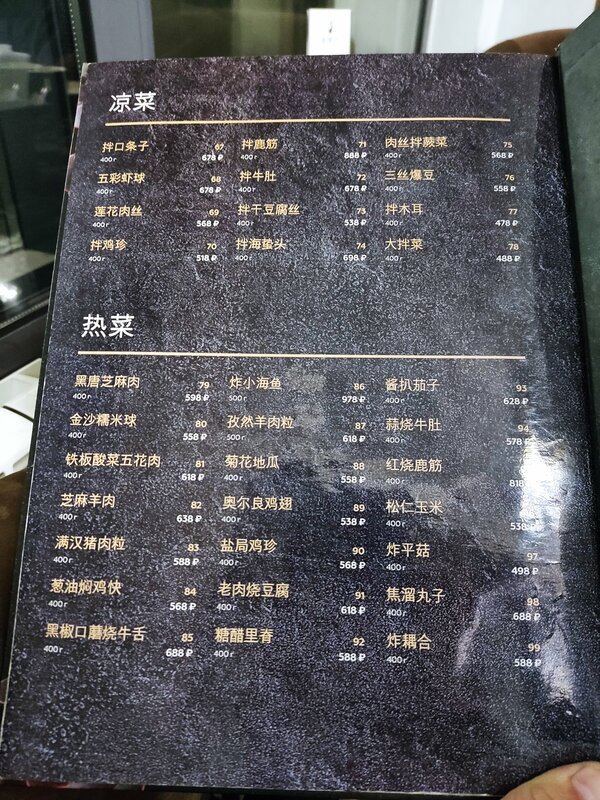 凉菜
拌口条子 67
400 г 678 ₽
五彩虾球 68
400 г 678 ₽
莲花肉丝 69
400 г 568 ₽
拌鸡珍 70
400 г 518 ₽
拌鹿筋 71
400 г 888 ₽
拌牛肚 72
400 г 678 ₽
拌干豆腐丝 73
400 г 538 ₽
拌海蛰头 74
400 г 698 ₽
肉丝拌蕨菜 75
400 г 568 ₽
三丝爆豆 76
400 г 558 ₽
拌木耳 77
400 г 478 ₽
大拌菜 78
400 г 488 ₽
热菜
黑唐芝麻肉 79
400 г 598 ₽
金沙糯米球 80
400 г 558 ₽
铁板酸菜五花肉 81
400 г 618 ₽
芝麻羊肉 82
400 г 638 ₽
满汉猪肉粒 83
400 г 588 ₽
葱油焖鸡快 84
400 г 568 ₽
黑椒口蘑烧牛舌 85
400 г 688 ₽
炸小海鱼 86
500 г 978 ₽
孜然羊肉粒 87
500 г 618 ₽
菊花地瓜 88
400 г 558 ₽
奥尔良鸡翅 89
400 г 538 ₽
盐局鸡珍 90
400 г 568 ₽
老肉烧豆腐 91
400 г 618 ₽
糖醋里脊 92
400 г 588 ₽
酱扒茄子 93
400 г 628 ₽
蒜烧牛肚 94
400 г 578 ₽
红烧鹿筋
400 г 818
松仁玉米
400 г 538
炸平菇 97
400 г 498 ₽
焦溜丸子 98
400 г 688 ₽
炸耦合 99
400 г 588 ₽